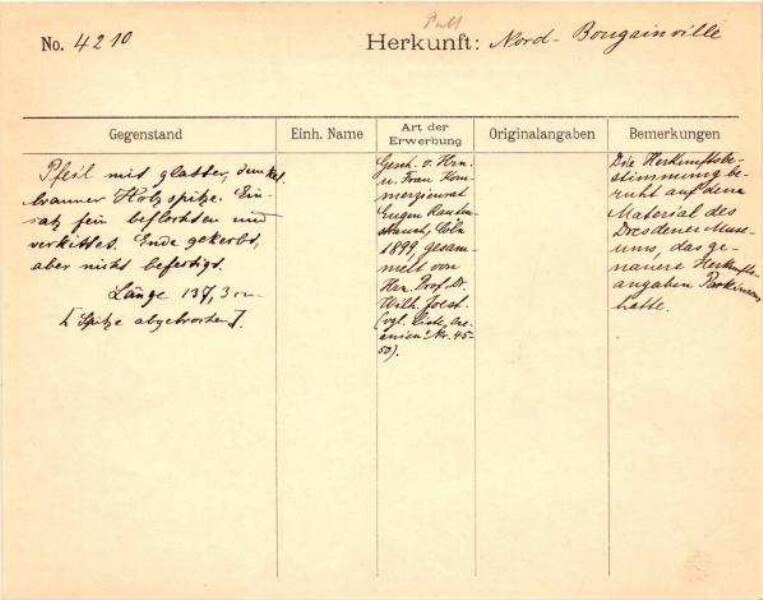 No. 4210
Herkunft: Nord-Bougainville
Gegenstand
Einh. Name
Art der Erwerbung
Originalangaben
Bemerkungen
Pfeil mit glatter, dunkel
brauner Holzspitze. Ein-
satz fein beflochten und
verkittet. Ende gekerbt,
aber nicht befestigt.
Länge 137,3 cm
[Spitze abgebrochen].
Gesch. v. Hrn.
u. Frau Kom-
merzienrat
Eugen Rauten-
strauch, Cöln
1899, gesam-
melt von
Hrn. Prof. Dr.
Wilh. Joest.
(vgl. Liste „Oce-
anien" Nr. 45-
50).
Die Herkunftsbe-
stimmung be-
ruht auf dem
Material des
Dresdener Muse-
ums, das ge-
nauere Herkunfts-
angaben Parkinsons
hatte.